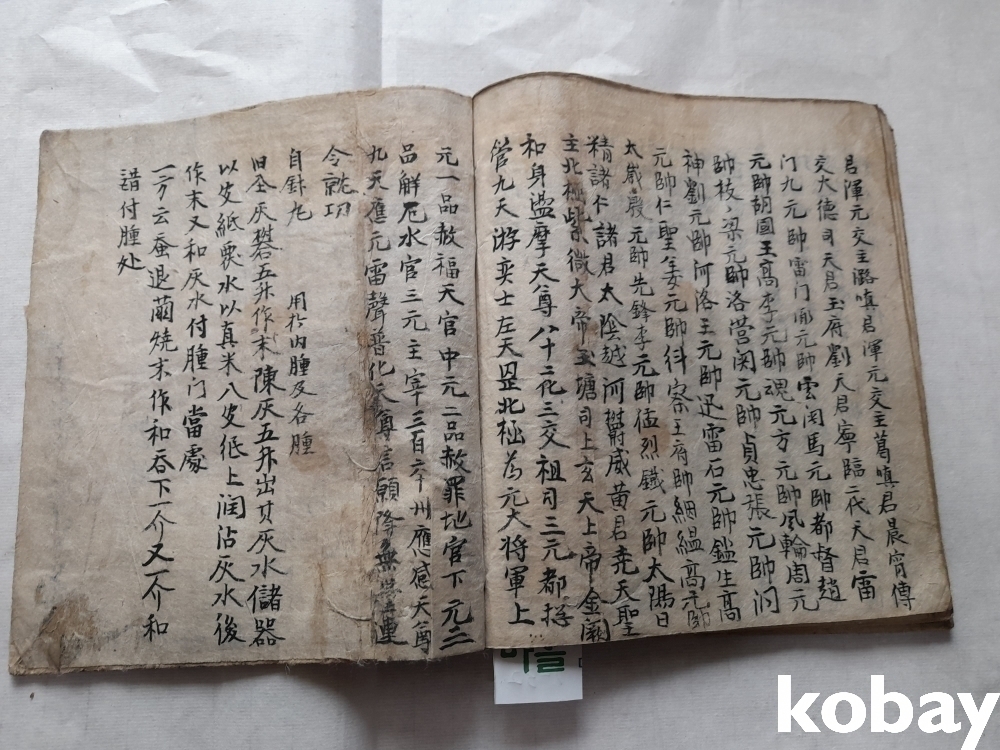 君渾元交主潞真君渾元交主葛真君晨宵傳
交大德司天君玉府劉天君寧臨二代天君雷
門九元帥雷门元帥雲闲馬元帥都督趙
元帥胡國王高李元帥魂元方元帥風輪周元
帥枝梁元帥洛营闵元帥貞忠張元帥洞
神劉元帥河洛王元帥迅雷石元帥鑑生高
元帥仁聖姜元帥科察王府帥絪縕高元帥
太歲晨元帥先鋒李元帥猛烈鐵元帥太陽日
精諸仁諸君太陰越河威黄君尭天聖
主北極紫微大帝玉塘司上玄天上帝金闕
和身溫摩天尊八十花三交祖司三元都揔
管九天游奕士左天罡北極為元大将軍上
元一品赦福天官中元二品赦罪地官下元三
品解厄水官三元主宰三百六十州應感天尊
九天應元雷聲普化天尊言願降無速
令就功
自針丸 用於内腫及各腫
旧全灰礬五升作末陳灰五升出其灰水儲器
以皮紙要水以真米八皮紙上润沾灰水後
作末又和灰水付腫门當處
一方云蚕退繭燒末作和吞下一介又一介和
諎付腫处
kobay